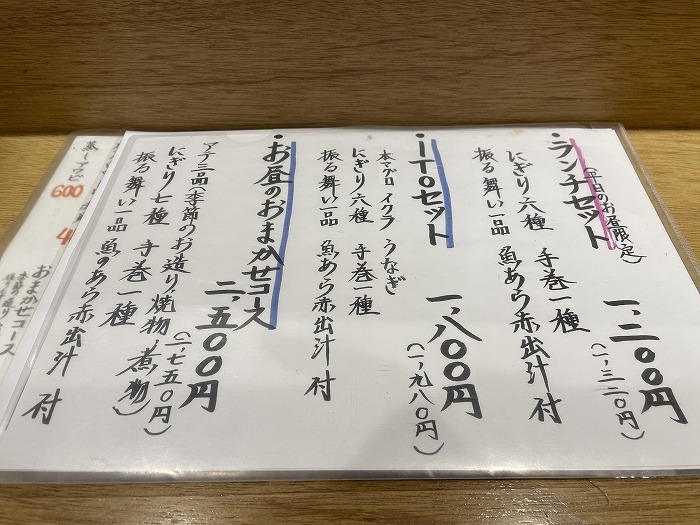 ・ランチセット
(平日のお昼限定)
一、二〇〇円
(一、三二〇円)
にぎり六種 手巻一種
振る舞い一品 魚あら赤出汁付
・ITOセット
一、八〇〇円
(一、九八〇円)
本マグロ イクラ うなぎ
にぎり六種 手巻一種
振る舞い一品 魚あら赤出汁 付
・お昼のおまかせコース
二、五〇〇円
(二、七五〇円)
アテ三品(季節のお造り、焼物、煮物)
にぎり七種 手巻一種
振る舞い一品 魚のあら赤出汁 付
蒸しアワビ
600
おまかせコース